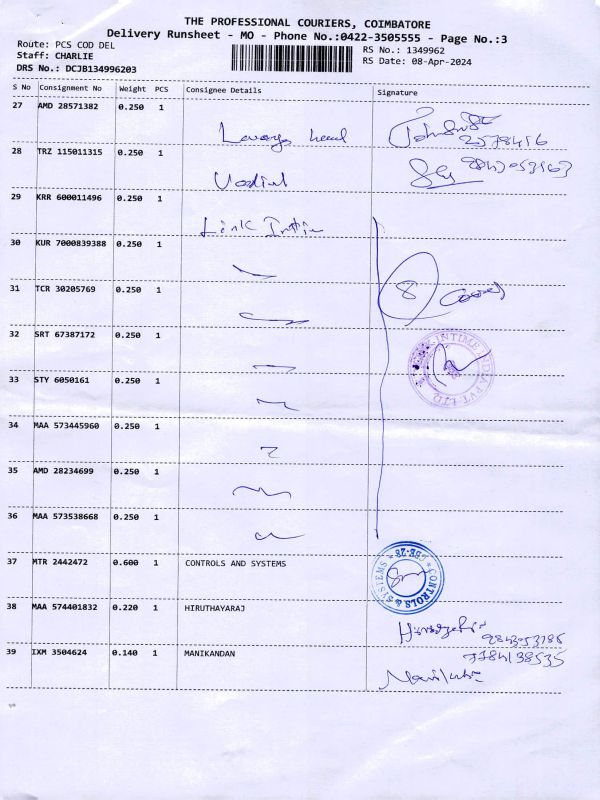 THE PROFESSIONAL COURIERS, COIMBATORE
Delivery Runsheet - MO - Phone No.:0422-3505555 - Page No.:3
Route: PCS COD DEL
RS No.: 1349962
Staff: CHARLIE
RS Date: 08-Apr-2024
DRS No.: DCJB134996203
S No Consignment No Weight PCS Consignee Details Signature
27 AMD 28571382 0.250 1
28 TRZ 115011315 0.250 1
29 KRR 600011496 0.250 1
Link Intim
30 KUR 7000839388 0.250 1
31 TCR 30205769 0.250 1
8
32 SRT 67387172 0.250 1
INTIME INDIA PVT LTD
33 STY 6050161 0.250 1
34 MAA 573445960 0.250 1
35 AMD 28234699 0.250 1
36 MAA 573538668 0.250 1
37 MTR 2442472 0.600 1 CONTROLS AND SYSTEMS
CONTROLS & SYSTEMS * CBE-28 *
38 MAA 574401832 0.220 1 HIRUTHAYARAJ
39 IXM 3504624 0.140 1 MANIKANDAN